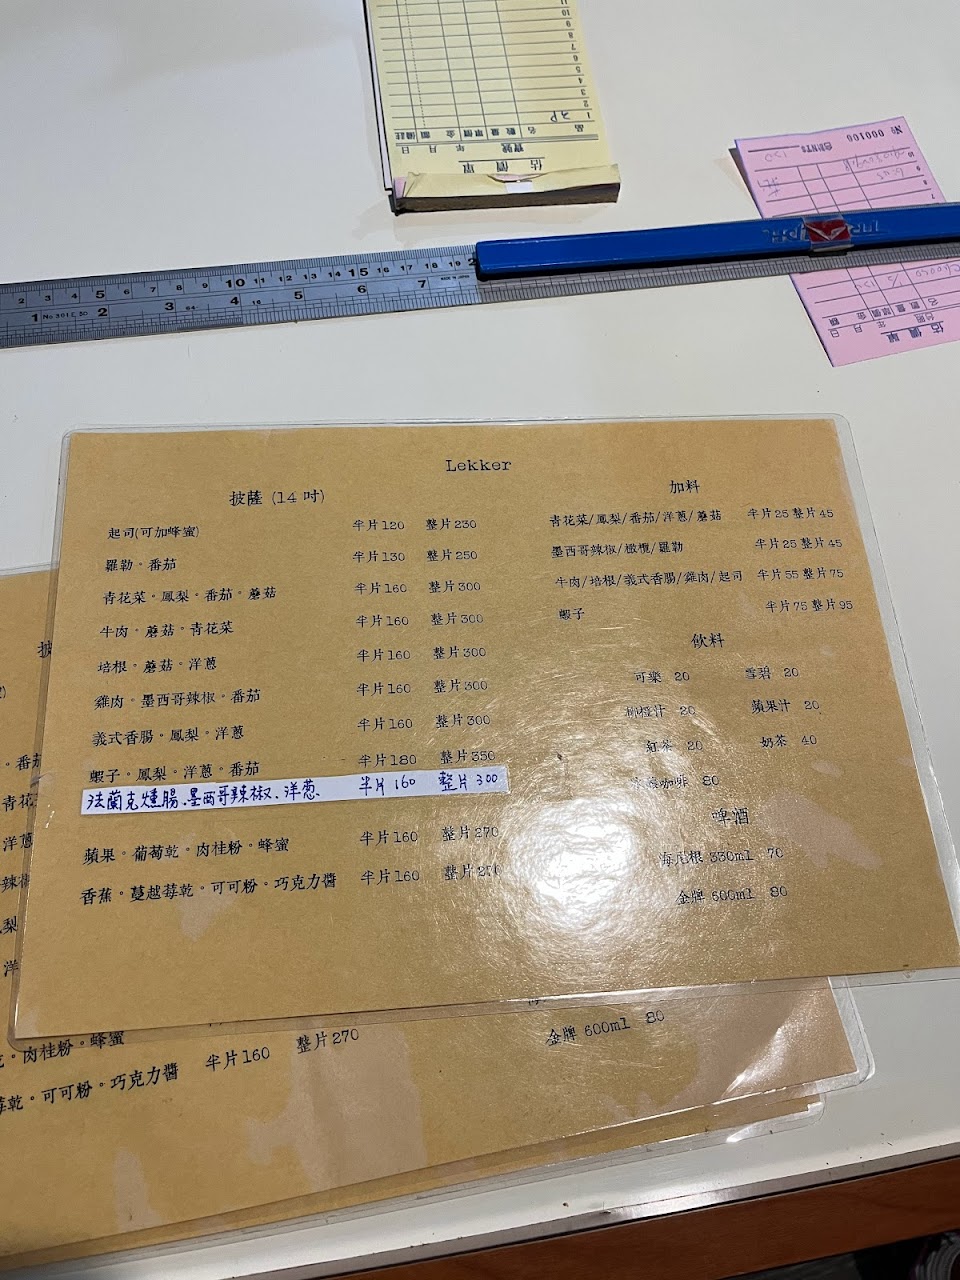 估價單
寶號
年 月 日
品 名 數量 單價 金 額 備註
1
2
3
4
5
6
7
8
9
10
11
№ 000100
10
9
8
7
估價單
年 月 日
5 10 15
1 2 3 4 5 6 7
Lekker
披薩 (14 吋)
起司(可加蜂蜜) 半片120 整片230
羅勒。番茄 半片130 整片250
青花菜。鳳梨。番茄。蘑菇 半片160 整片300
牛肉。蘑菇。青花菜 半片160 整片300
培根。蘑菇。洋蔥 半片160 整片300
雞肉。墨西哥辣椒。番茄 半片160 整片300
義式香腸。鳳梨。洋蔥 半片160 整片300
蝦子。鳳梨。洋蔥。番茄 半片180 整片350
法蘭克燻腸、墨西哥辣椒、洋蔥 半片160 整片300
蘋果。葡萄乾。肉桂粉。蜂蜜 半片160 整片270
香蕉。蔓越莓乾。可可粉。巧克力醬 半片160 整片270
加料
青花菜/鳳梨/番茄/洋蔥/蘑菇 半片25 整片45
墨西哥辣椒/橄欖/羅勒 半片25 整片45
牛肉/培根/義式香腸/雞肉/起司 半片55 整片75
蝦子 半片75 整片95
飲料
可樂 20 雪碧 20
柳橙汁 20 蘋果汁 20
紅茶 20 奶茶 40
咖啡 80
啤酒
海尼根 330ml 70
金牌 600ml 80
。肉桂粉。蜂蜜
莓乾。可可粉。巧克力醬 半片160 整片270
金牌 600ml 80